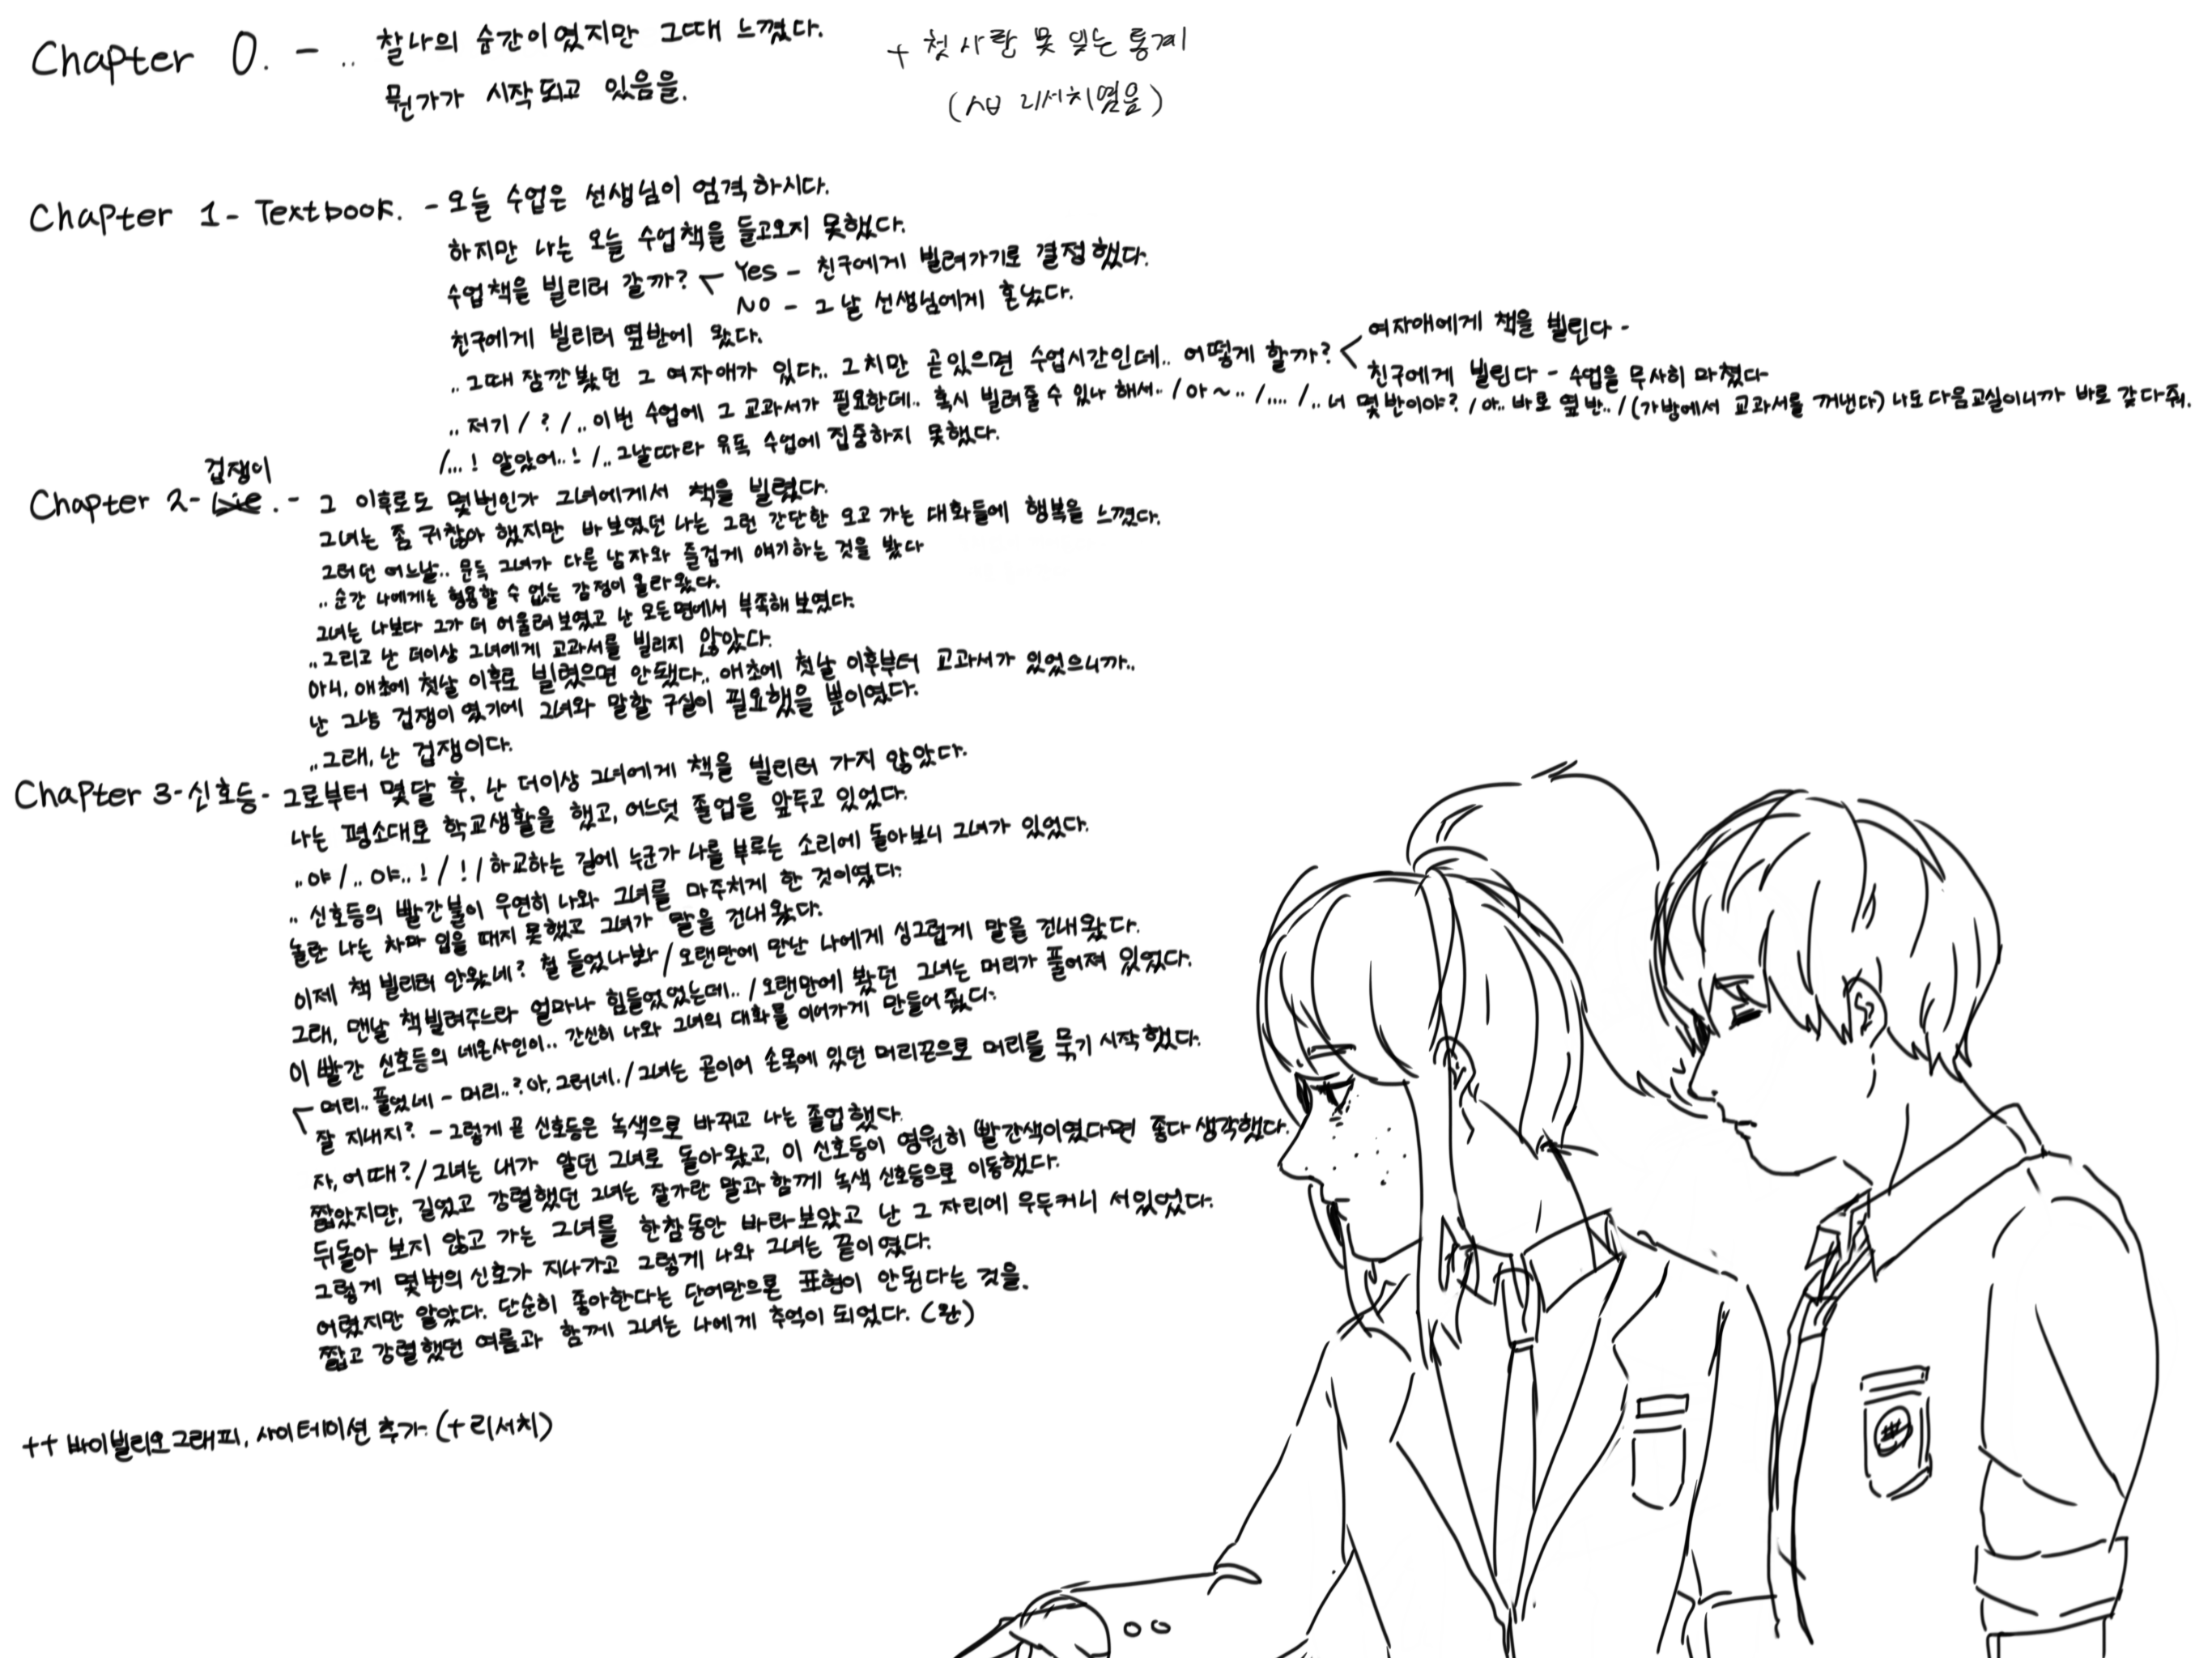 Chapter 0. - ..찰나의 순간이였지만 그때 느꼈다.
뭔가가 시작되고 있음을.
+ 첫사랑 못 잊는 통계
(AD 리서치였음)
Chapter 1 - Textbook. - 오늘 수업은 선생님이 엄격하시다.
하지만 나는 오늘 수업책을 들고오지 못했다.
수업책을 빌리러 갈까? Yes - 친구에게 빌려가기로 결정했다.
NO - 그날 선생님에게 혼났다.
친구에게 빌리러 옆반에 왔다.
.. 그때 잠깐봤던 그 여자애가 있다.. 그치만 곧있으면 수업시간인데.. 어떻게 할까? 여자애에게 책을 빌린다 -
친구에게 빌린다 - 수업을 무사히 마쳤다
.. 저기 / ? / .. 이번 수업에 그 교과서가 필요한데.. 혹시 빌려줄 수 있나 해서.. / 아~.. / .... / .. 너 몇반이야? / 아.. 바로 옆반.. / (가방에서 교과서를 꺼낸다) 나도 다음교실이니까 바로 갖다줘.
/ ...! 알았어..! / .. 그날따라 유독 수업에 집중하지 못했다.
겁쟁이
Chapter 2 - Lie. - 그 이후로도 몇번인가 그녀에게서 책을 빌렸다.
그녀는 좀 귀찮아 했지만 바보였던 나는 그런 간단한 오고 가는 대화들에 행복을 느꼈다.
그러던 어느날.. 문득 그녀가 다른 남자와 즐겁게 얘기하는 것을 봤다
.. 순간 나에게는 형용할 수 없는 감정이 올라왔다.
그녀는 나보다 그가 더 어울려보였고 난 모든면에서 부족해 보였다.
.. 그리고 난 더이상 그녀에게 교과서를 빌리지 않았다.
아니, 애초에 첫날 이후로 빌렸으면 안됐다.. 애초에 첫날 이후부터 교과서가 있었으니까..
난 그냥 겁쟁이였기에 그녀와 말할 구실이 필요했을 뿐이였다.
.. 그래, 난 겁쟁이다.
Chapter 3 - 신호등 - 그로부터 몇달 후, 난 더이상 그녀에게 책을 빌리러 가지 않았다.
나는 평소대로 학교생활을 했고, 어느덧 졸업을 앞두고 있었다.
.. 야 / .. 야..! / ! / 하교하는 길에 누군가 나를 부루는 소리에 돌아보니 그녀가 있었다.
.. 신호등의 빨간불이 우연히 나와 그녀를 마주치게 한 것이였다.
놀란 나는 차마 입을 때지 못했고 그녀가 말을 건내왔다.
이제 책 빌리러 안왔네? 철 들었나봐 / 오랜만에 만난 나에게 싱그럽게 말을 건내왔다.
그래, 맨날 책빌려주느라 얼마나 힘들었었는데.. / 오랜만에 봤던 그녀는 머리가 풀어져 있었다.
이 빨간 신호등의 네온사인이.. 간신히 나와 그녀의 대화를 이어가게 만들어 줬다.
머리.. 풀었네 - 머리..? 아, 그러네. / 그녀는 곧이어 손목에 있던 머리끈으로 머리를 묶기 시작했다.
잘 지내지? - 그렇게 곧 신호등은 녹색으로 바뀌고 나는 졸업했다.
자, 어때? / 그녀는 내가 알던 그녀로 돌아왔고, 이 신호등이 영원히 빨간색이였다면 좋다 생각했다.
짧았지만, 길었고 강렬했던 그녀는 잘가란 말과 함께 녹색 신호등으로 이동했다.
뒤돌아 보지 않고 가는 그녀를 한참동안 바라보았고 난 그 자리에 우두커니 서있었다.
그렇게 몇번의 신호가 지나가고 그렇게 나와 그녀는 끝이였다.
어렸지만 알았다. 단순히 좋아한다는 단어만으론 표현이 안된다는 것을.
짧고 강렬했던 여름과 함께 그녀는 나에게 추억이 되었다. (완)
++ 바이빌리오그래피, 사이테이션 추가. (+리서치)